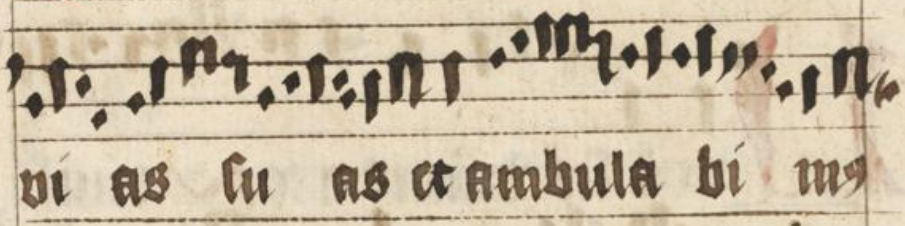 vi as su as et ambula bi mꝰ